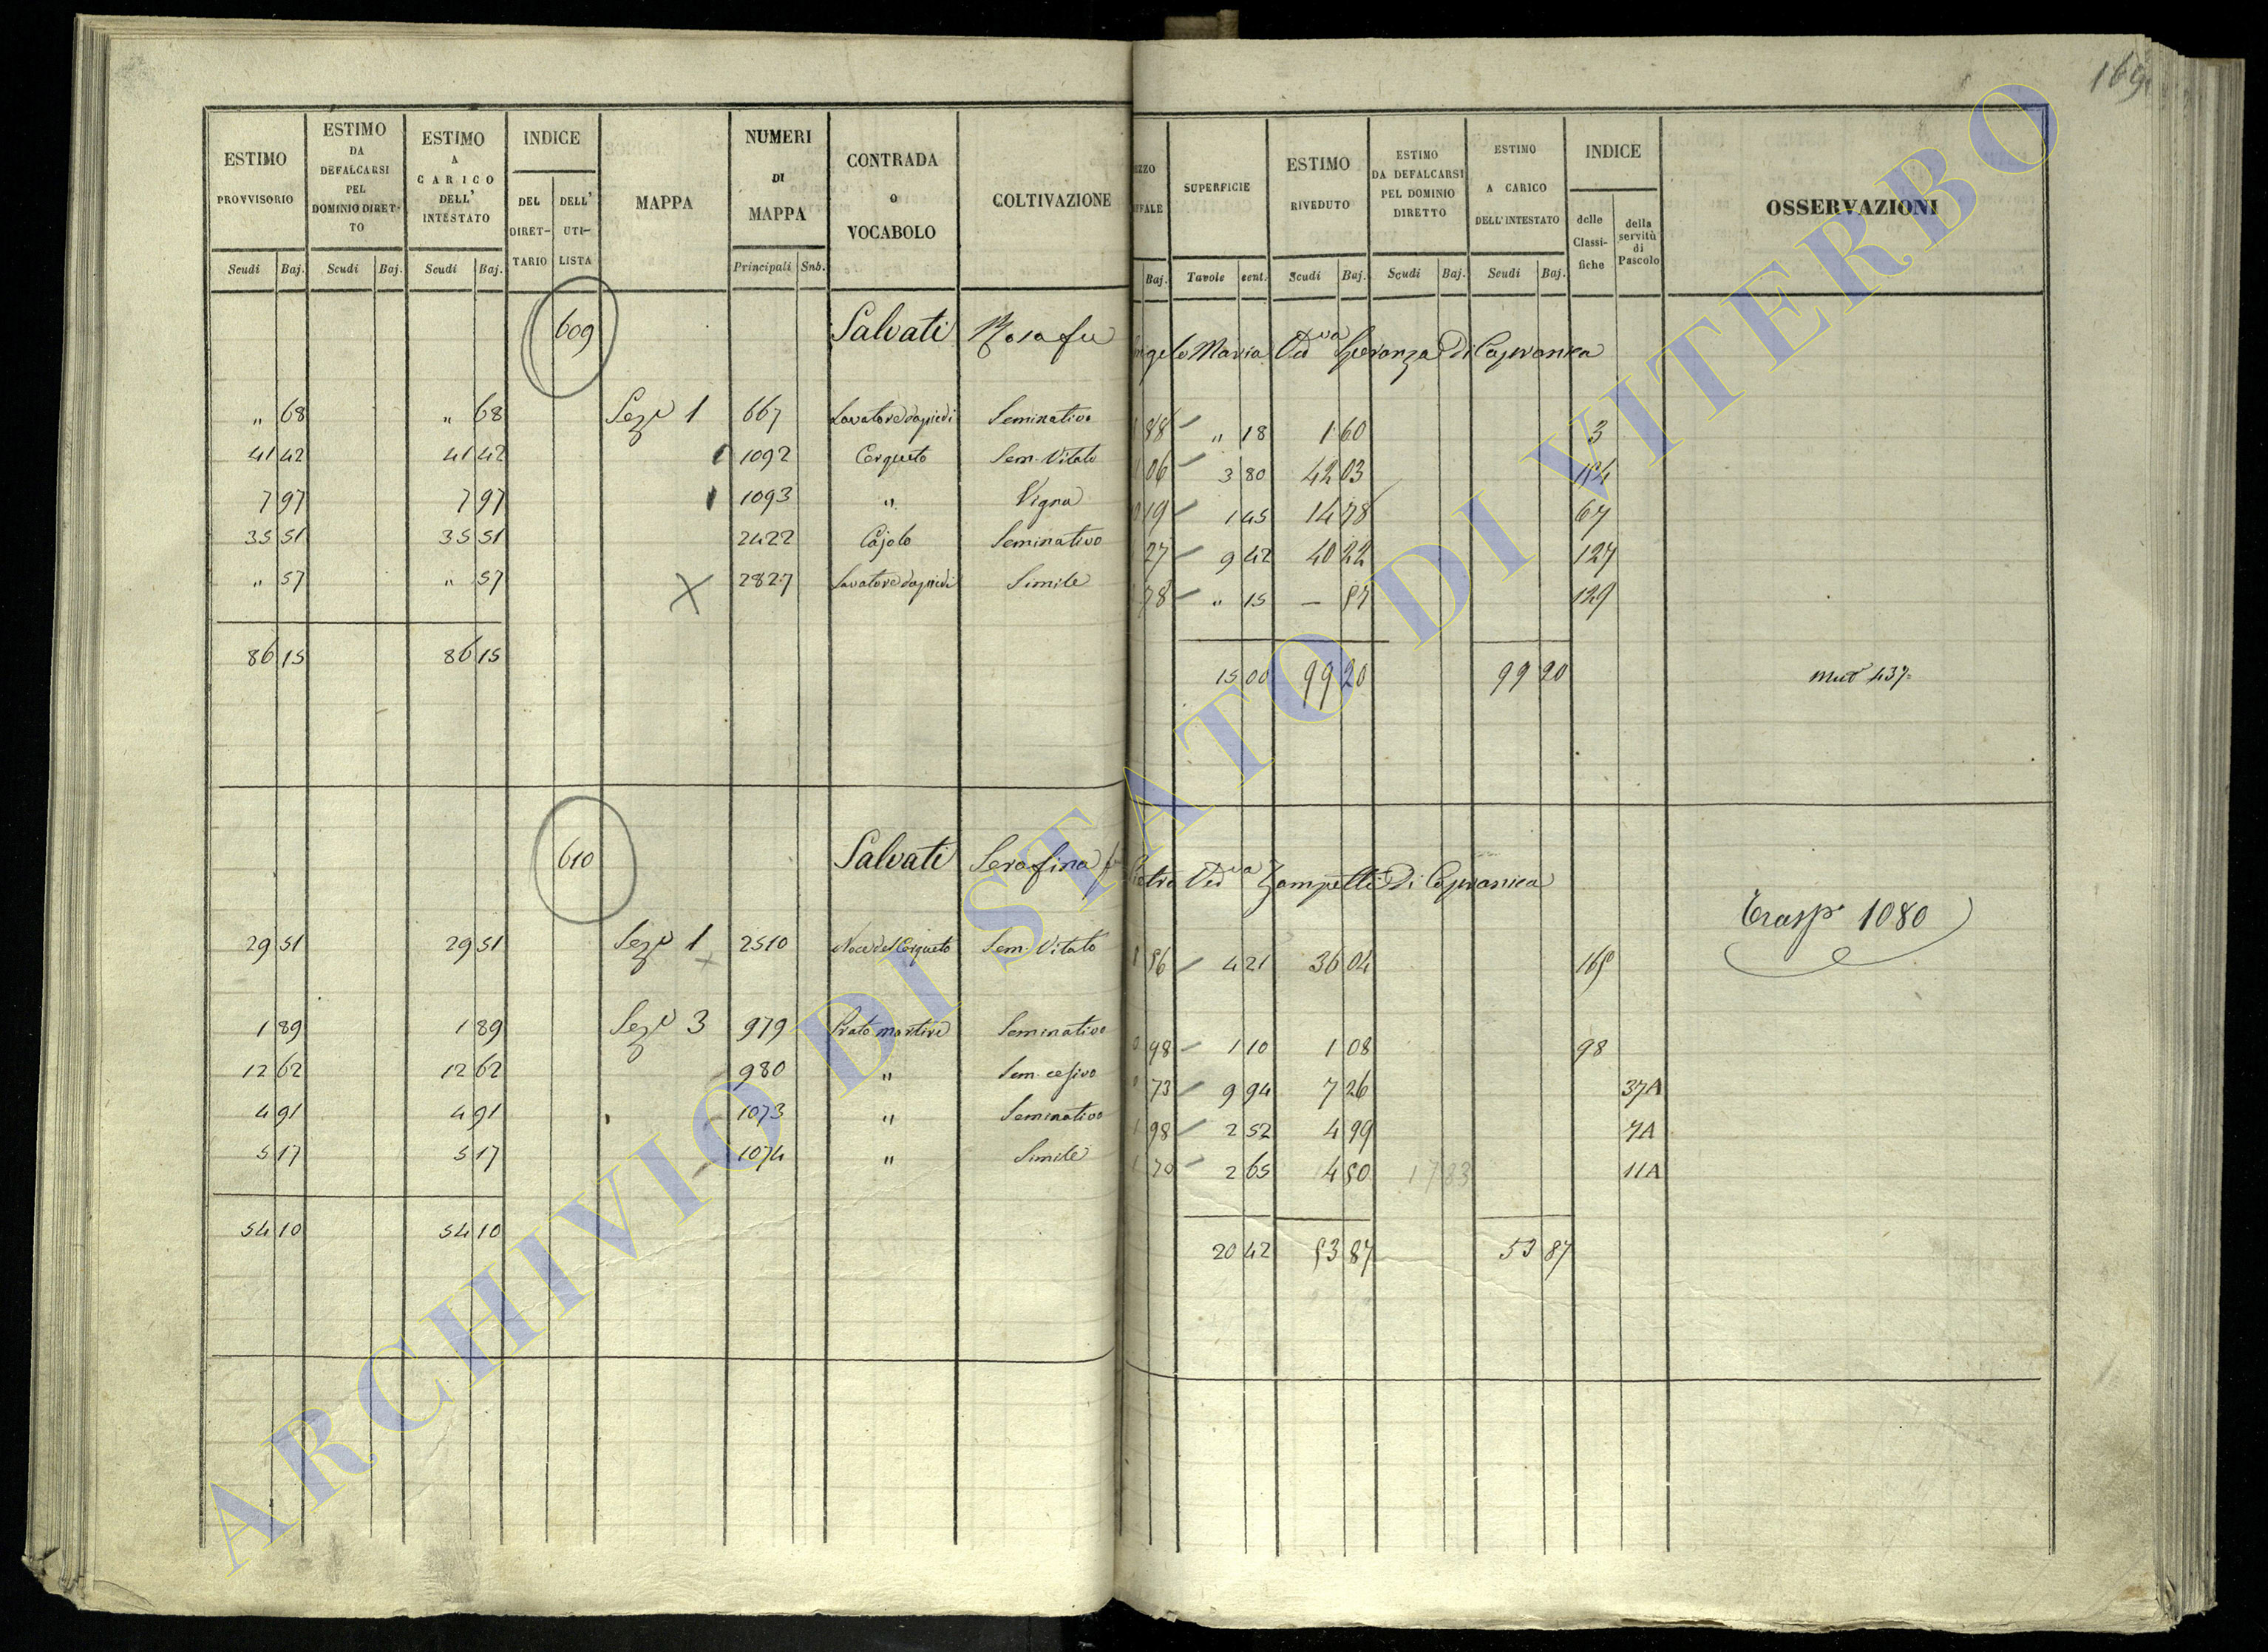 169
ESTIMO PROVVISORIO Scudi Baj.
ESTIMO DA DEFALCARSI PEL DOMINIO DIRET-TO Scudi Baj.
ESTIMO A CARICO DELL' INTESTATO Scudi Baj.
INDICE DEL DIRET-TARIO DELL' UTI-LISTA
MAPPA
NUMERI DI MAPPA Principali Snb.
CONTRADA O VOCABOLO
COLTIVAZIONE
Baj.
SUPERFICIE Tavole cent.
ESTIMO RIVEDUTO Scudi Baj.
ESTIMO DA DEFALCARSI PEL DOMINIO DIRETTO Scudi Baj.
ESTIMO A CARICO DELL'INTESTATO Scudi Baj.
INDICE delle Classi-fiche della servitù di Pascolo
OSSERVAZIONI
609 Salvati Rosa fu Angelo Maria Ved va Speranza Di Capranica
" 68 " 68 Sez e 1 667 Lavatore dapiedi Seminativo 88 " 18 1 60 3
41 42 41 42 1092 Cerqueto Sem. Vitato 06 3 80 42 03 154
7 97 7 97 1093 " Vigna 19 1 45 14 78 67
35 51 35 51 2422 Cajolo Seminativo 27 9 42 40 22 127
" 57 " 57 X 2827 Lavatore dapiedi Simile 78 " 15 — 57 129
86 15 86 15 15 00 99 20 99 20
610 Salvati Serafina fu Pietro Ved va Zampetti Di Capranica
Trasp. 1080
29 51 29 51 Sez e 1 2510 Noce del Cerqueto Sem. Vitato 56 4 21 36 04 165
1 89 1 89 Sez e 3 979 Prato martire Seminativo 98 1 10 1 08 98
12 62 12 62 980 " Sem. cesivo 73 9 94 7 26 37A
4 91 4 91 1073 " Seminativo 98 2 52 4 99 7A
5 17 5 17 1074 " Simile 70 2 65 4 50 17 83 11A
54 10 54 10 20 42 53 87 53 87
ARCHIVIO DI STATO DI VITERBO